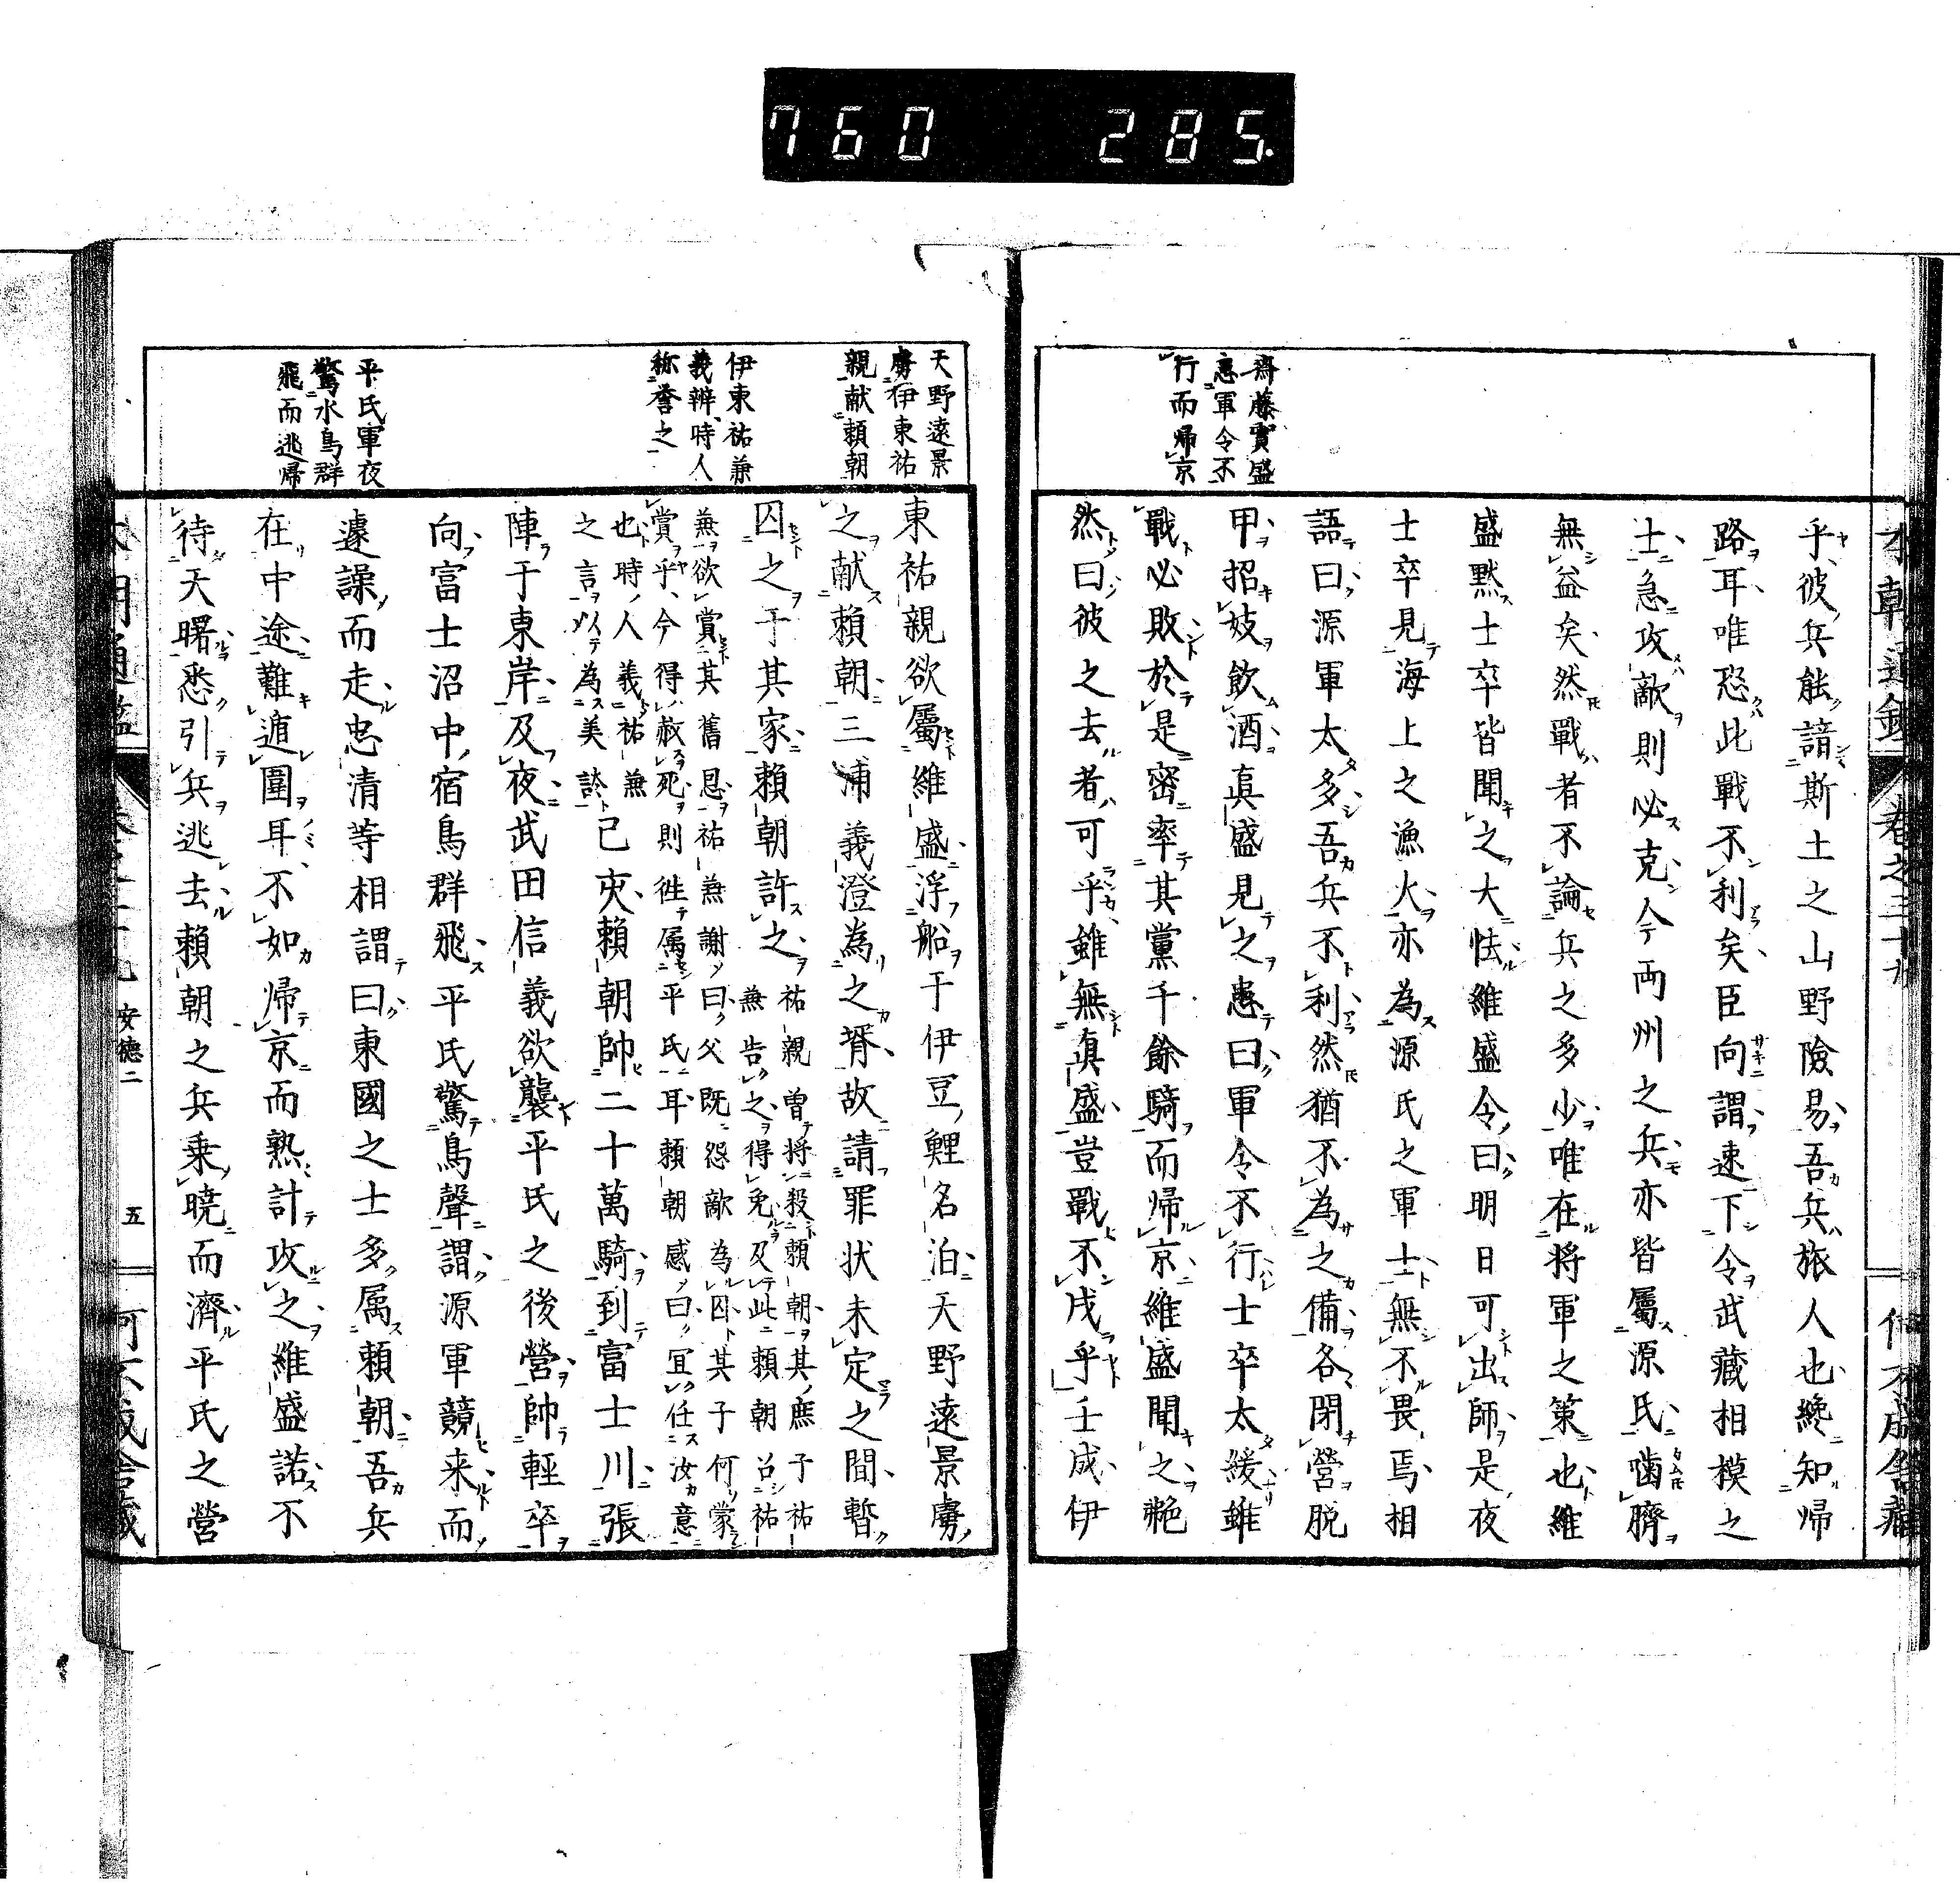 760 285.
齋藤實盛
憃軍令不
行而帰京
乎彼兵能諳斯土之山野險易吾兵旅人也纔知帰
路耳唯恐此戰不利矣臣向謂速下令武藏相模之
士急攻敵則必克今兩州之兵亦皆屬源氏噛臍
無益矣然戰者不論兵之多少唯在將軍之策也維
盛黙士卒皆聞之大怯維盛令曰明日可出師是夜
士卒見海上之漁火亦為源氏之軍士無不畏焉相
語曰源軍太多吾兵不利然猶不為之備各閉營脱
甲招妓飲酒眞盛見之愚曰軍令不行士卒太緩雖
戰必敗於是密率其黨千餘騎而帰京維盛聞之艴
然曰彼之去者可乎雖無眞盛豈戰不戌乎壬戌伊
天野遠景
虜伊東祐
親献頼朝
伊東祐兼
義辨時人
称誉之
平氏軍夜
驚水鳥群
飛而逃帰
東祐親欲屬維盛浮船于伊豆鯉名泊天野遠景虜
之献頼朝三浦義澄為之壻故請罪状未定之間暫
囚之于其家頼朝許之
祐親曽將殺頼朝其庶子祐
兼告之得免及此頼朝召祐
兼欲賞其舊恩祐兼謝曰父既怨敵為囚其子何蒙
賞乎今得赦死則徃属平氏耳頼朝感曰宜任汝意
也時人義祐兼
之言以為美談
已亥頼朝帥二十萬騎到富士川張
陣于東岸及夜武田信義欲襲平氏之後營帥輕卒
向富士沼中宿鳥群飛平氏驚鳥聲謂源軍競来而
遽譟而走忠清等相謂曰東國之士多属頼朝吾兵
在中途難遁圍耳不如帰京而熟計攻之維盛諾不
待天曙悉引兵逃去頼朝之兵乗曉而濟平氏之營
安德二
五